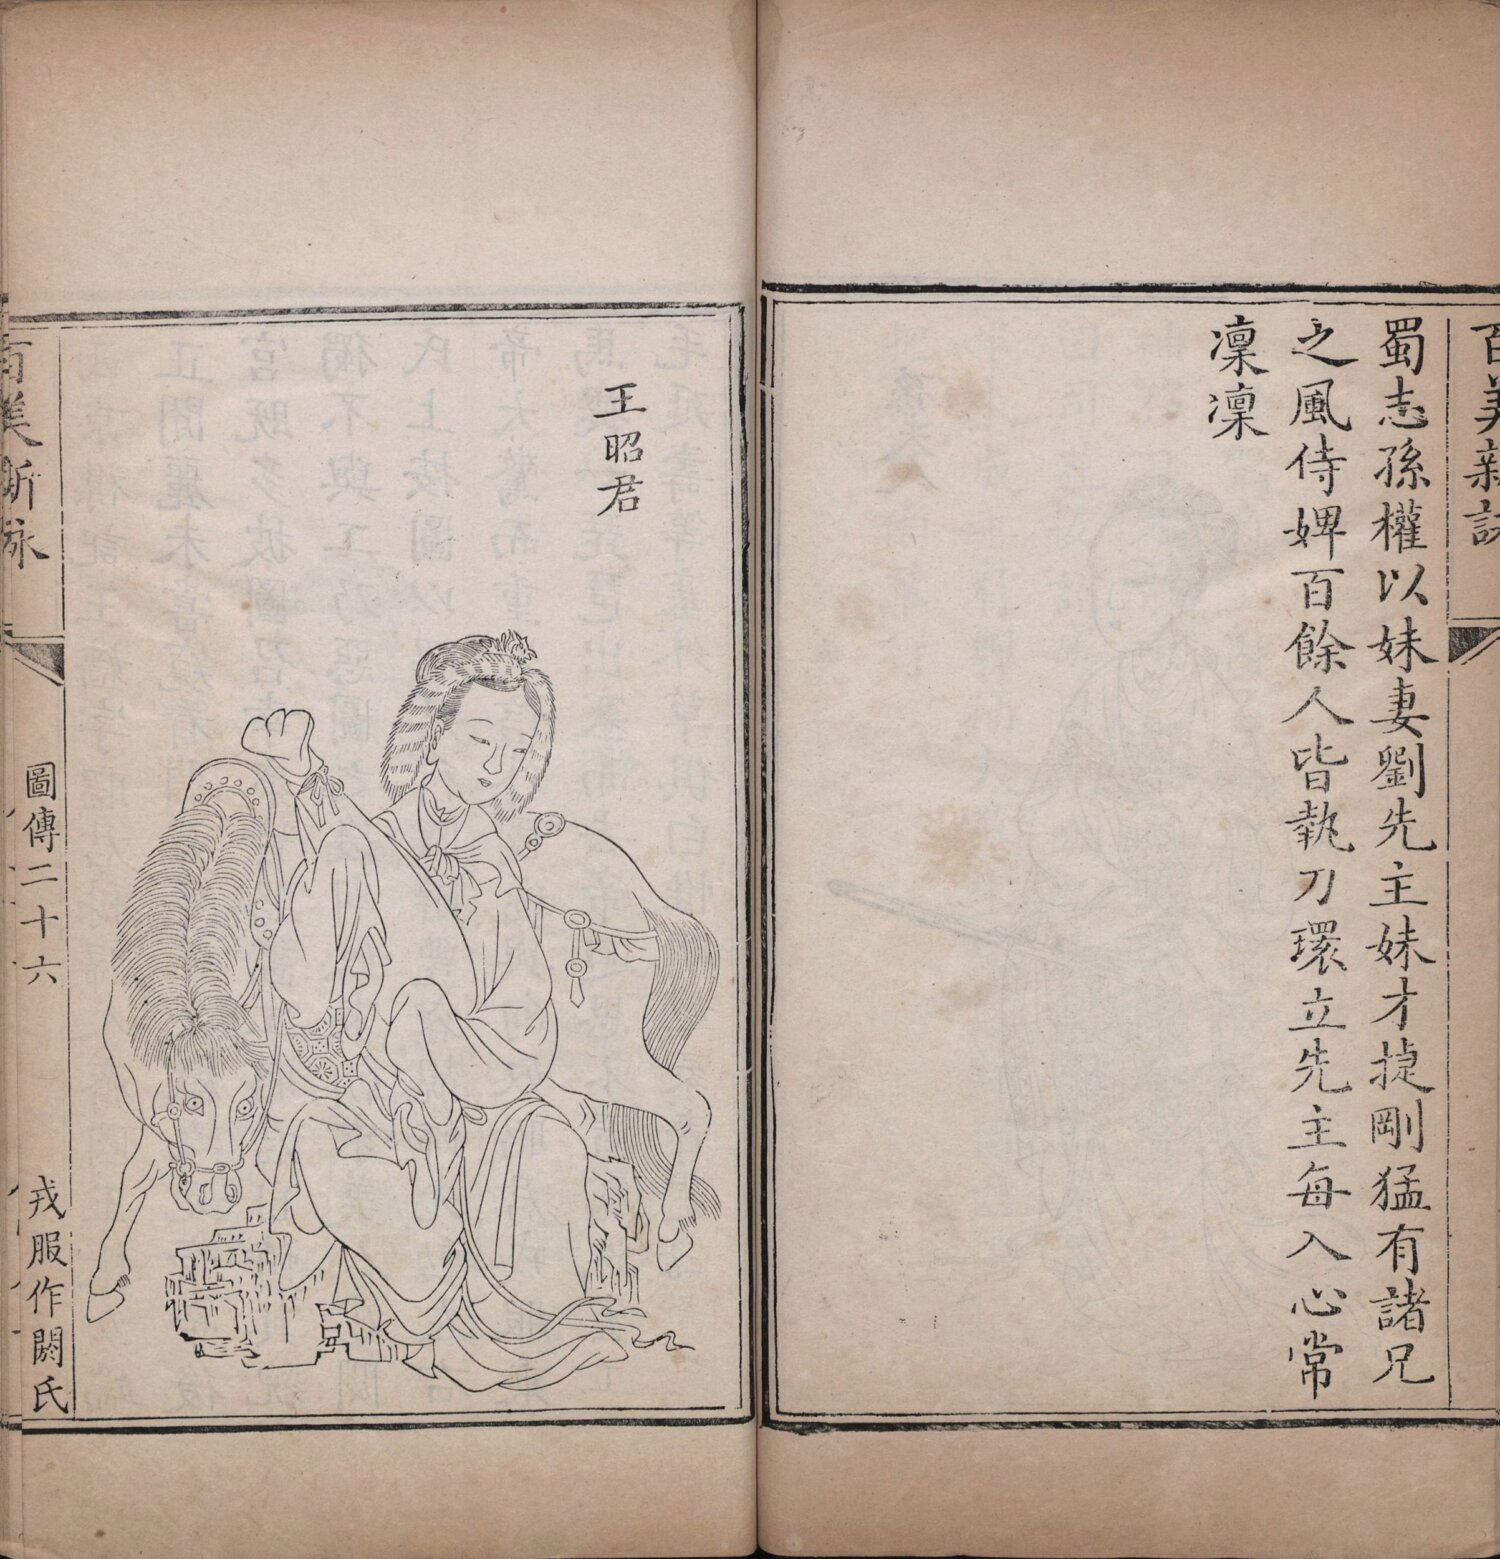 百美新詠
蜀志孫權以妹妻劉先主妹才捷剛猛有諸兄
之風侍婢百餘人皆執刀環立先主每入心常
凜凜
王昭君
百美新詠
圖傳二十六
戎服作閼氏